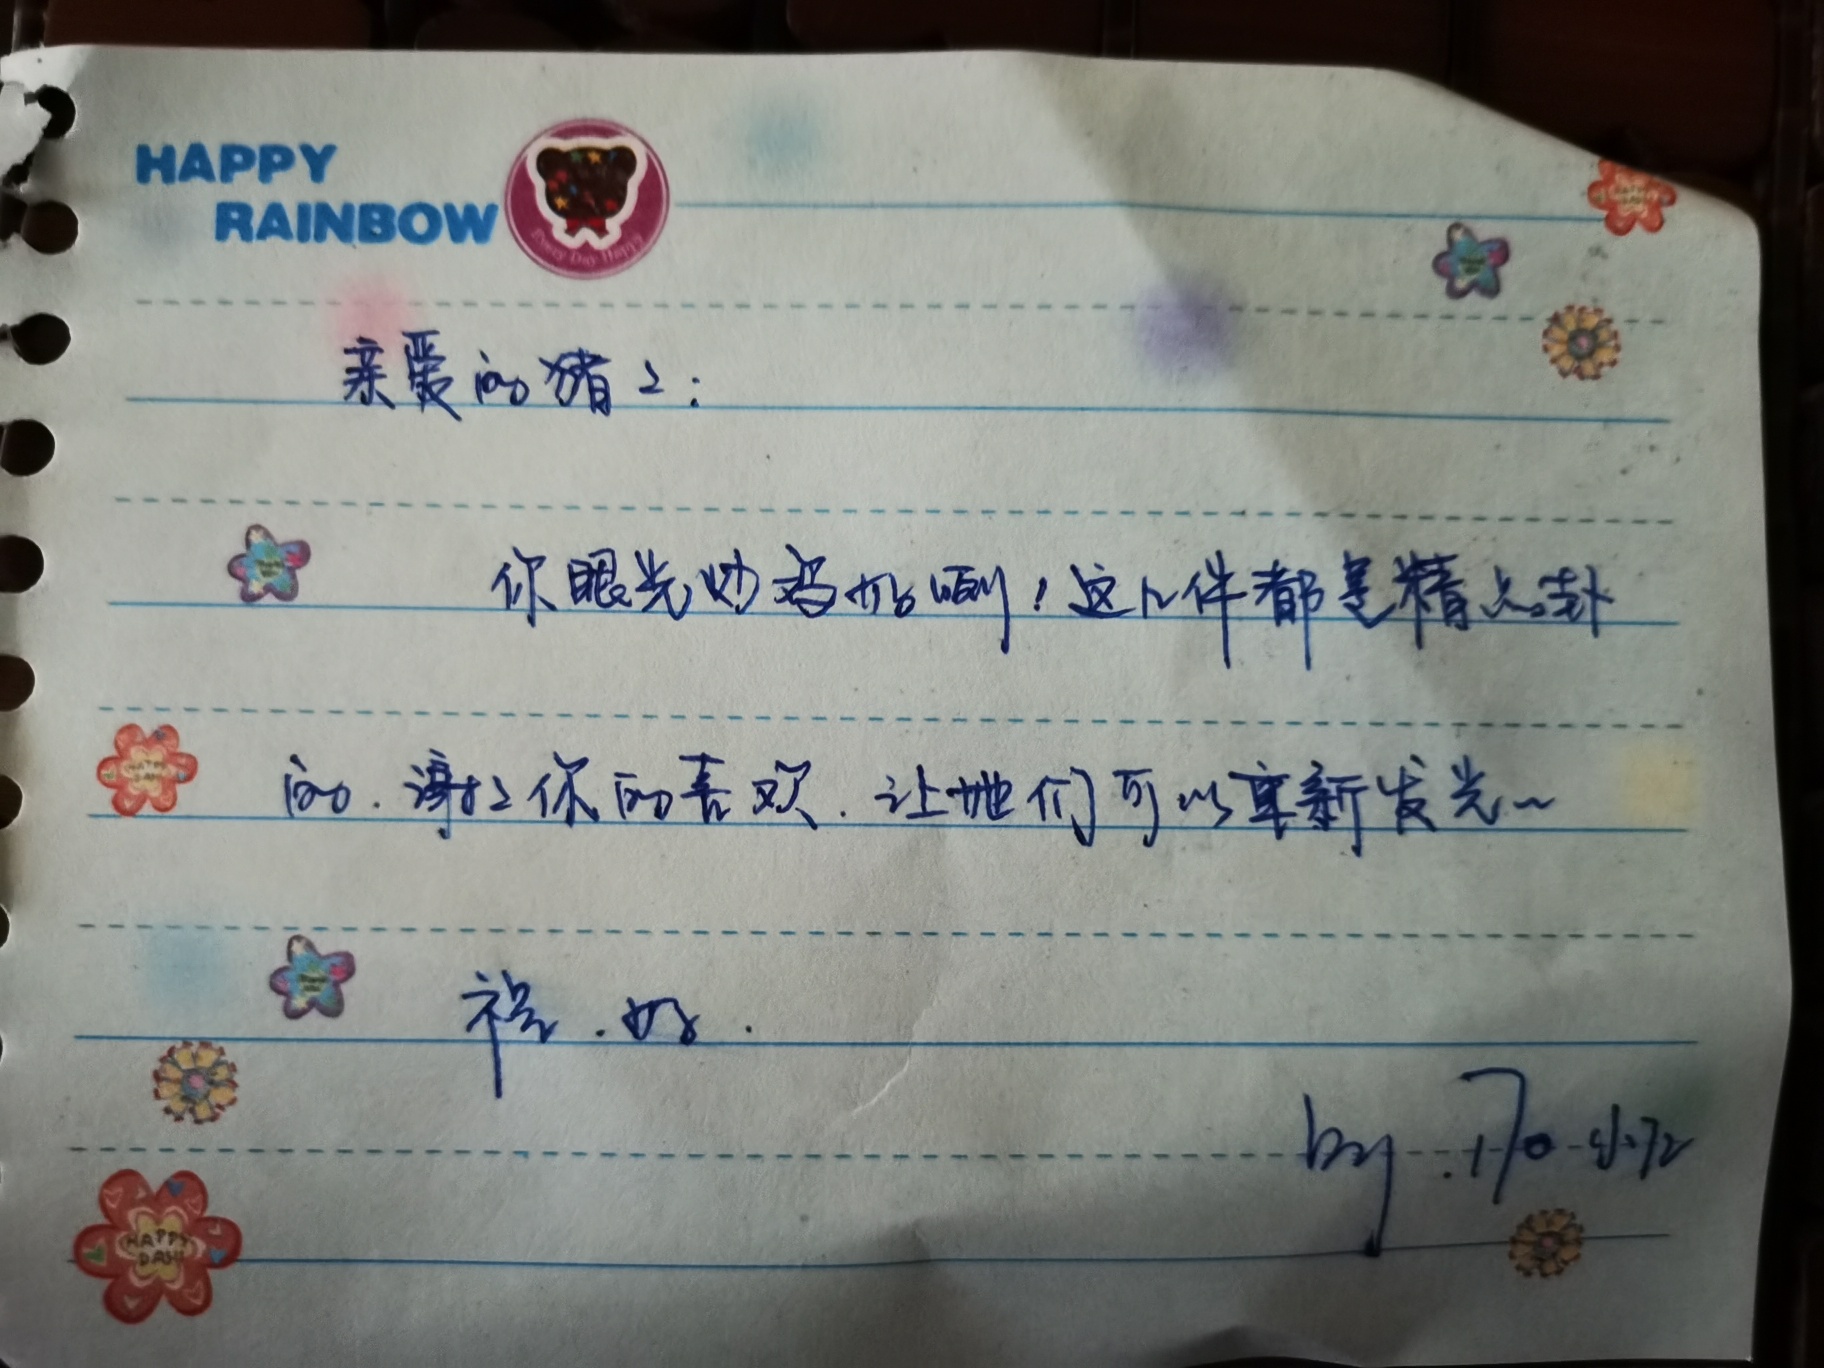 HAPPY
RAINBOW
Every Day Happy
亲爱的猪猪:
你眼光炒鸡好啊!这几件都是精品款
的.谢谢你的喜欢.让她们可以重新发光~
祝.好.
by.
HAPPY
DAY